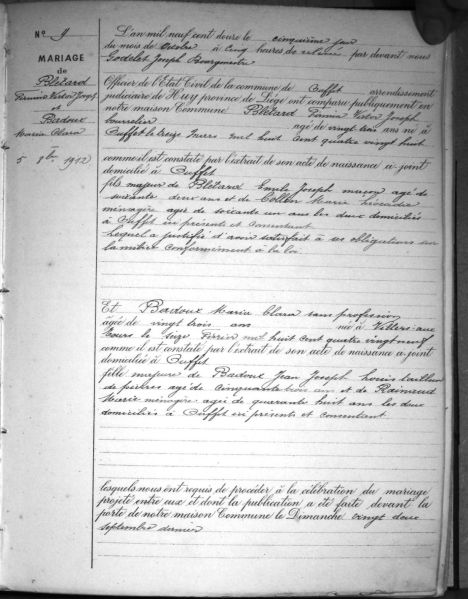 N° 9
MARIAGE
de
Blétard
Firmin Victor Joseph
et
Bardoux
Maria Clara
5 8bre 1912
L'an mil neuf cent douze le cinquième jour
du mois de Octobre à cinq heures de relevée par devant nous
Godelet Joseph Bourgmestre
Officier de l'Etat Civil de la commune de Ouffet arrondissement
judiciaire de Huy province de Liége ont comparu publiquement en
notre maison Commune Blétard Firmin Victor Joseph
bourrelier âgé de vingt trois ans né à
Ouffet le treize Mars mil huit cent quatre vingt huit
comme il est constaté par l'extrait de son acte de naissance ci-joint
domicilié à Ouffet
fils majeur de Blétard Emile Joseph maçon agé de
soixante deux ans et de Marie
ménagère agée de soixante un ans les deux domiciliés
à Ouffet ici présents et consentant
Lequel a justifié d'avoir satisfait à ses obligations sur
la milice conformément à la loi.
Et Bardoux Maria Clara sans profession
âgée de vingt trois ans née à Villers-aux
Tours le seize Février mil huit cent quatre vingt neuf
comme il est constaté par l'extrait de son acte de naissance ci-joint
domiciliée à Ouffet
fille majeure de Bardoux Jean Joseph tailleur
de pierres agé de cinquante trois ans et de
Marie ménagère agée de quarante huit ans les deux
domiciliés à Ouffet ici présents et consentant
lesquels nous ont requis de procéder à la célébration du mariage
projeté entre eux et dont la publication a été faite devant la
porte de notre maison Commune le Dimanche vingt deux
septembre dernier